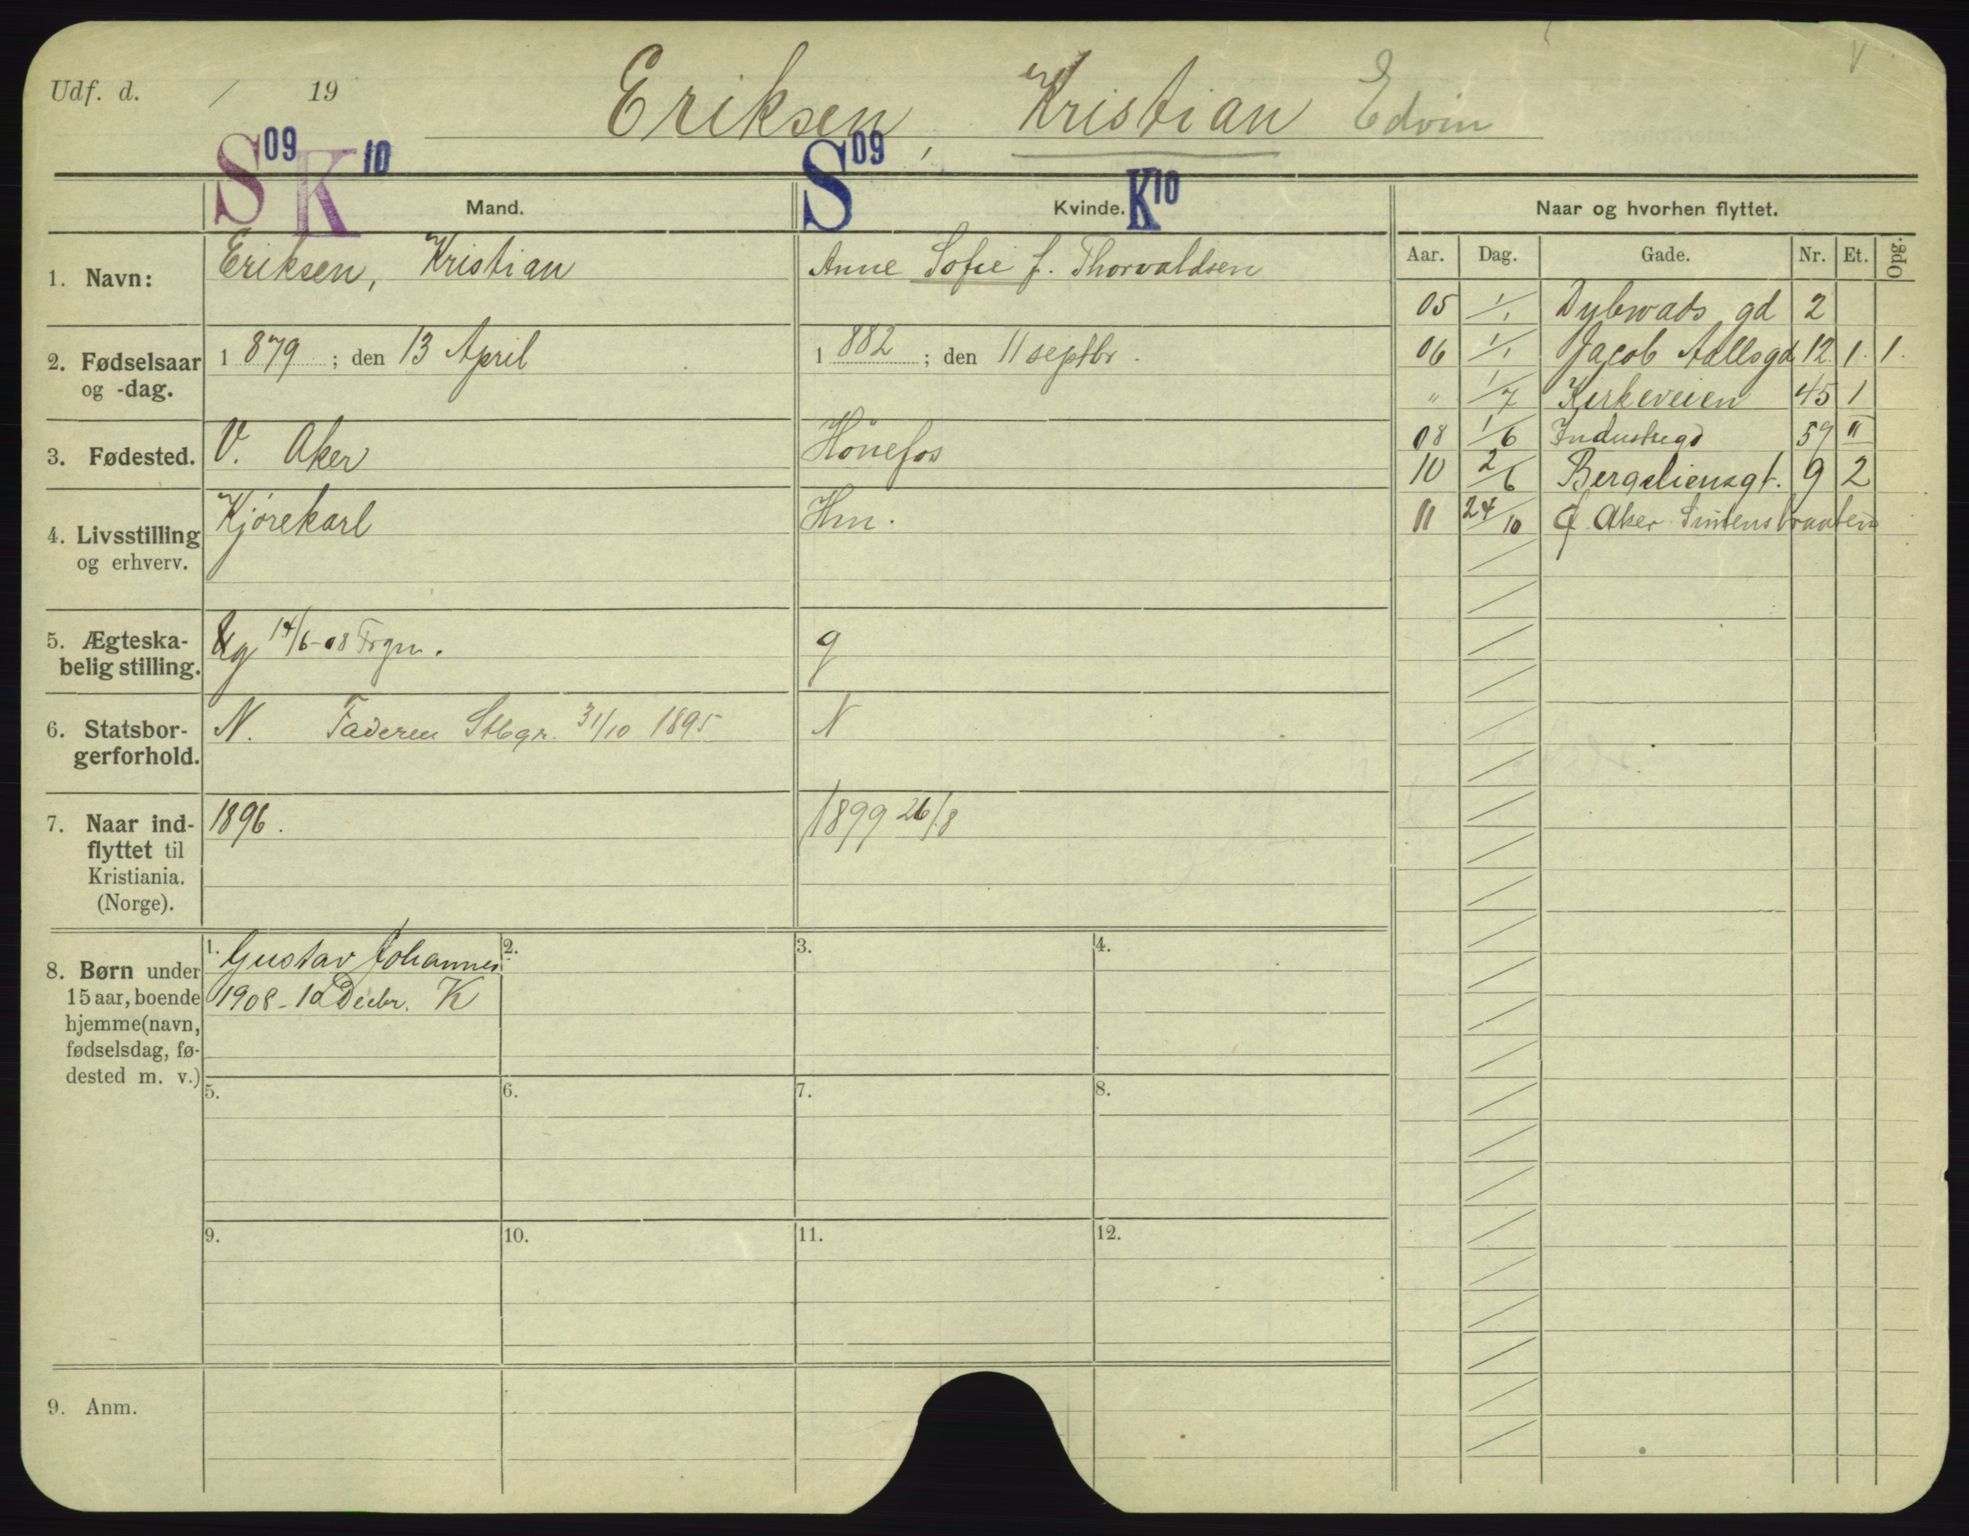 Udf. d. / 19 Eriksen, Kristian Edvin
S 09 K 10 S 09 K 10
Mand. Kvinde. Naar og hvorhen flyttet.
Aar. Dag. Gade. Nr. Et. Opg.
1. Navn: Eriksen, Kristian Anne Sofie f. Thorvaldsen
2. Fødselsaar 1879; den 13 April 1882; den 11 septbr.
og -dag.
3. Fødested. V. Aker Hönefos
4. Livsstilling Kjørekarl Hm.
og erhverv.
5. Ægteska- g 14/6-08 Frgm. g
belig stilling.
6. Statsbor- N. Faderen Stbgr. 31/10 1895 N
gerforhold.
7. Naar ind- 1896. 1899 26/8
flyttet til
Kristiania.
(Norge).
8. Børn under
15 aar, boende
hjemme (navn,
fødselsdag, fø-
dested m. v.)
1. Gustav Johannes
1908 - 10 Decbr. K
2.
3.
4.
5.
6.
7.
8.
9.
10.
11.
12.
9. Anm.
05 1/1 Dybwads gd 2
06 1/1 Jacob Aallsgd 12. 1. 1.
" 1/7 Kirkeveien 45 1
08 1/6 Industrigd 57 II
10 2/6 Bergsliensgt. 9 2
11 24/10 Aker Simensbraaten